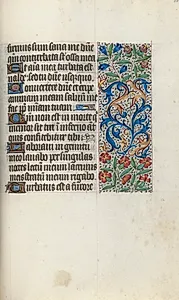 firmus sum sana me dñe
qm conturbata st ossa mea
Et aīa mea turbata est
valde sed tu dñe usquequo
Convertere dñe et eripe
animam meam salvū me
fac pp mīam tuam
Qm non est in morte q
memor sit tui in inferno aūt
quis confitebitur tibi
Laboravi in gemitu
meo lavabo per singulas
noctes lectū meum lacrimis
meis stratū meum rigabo
Turbatus est a furore